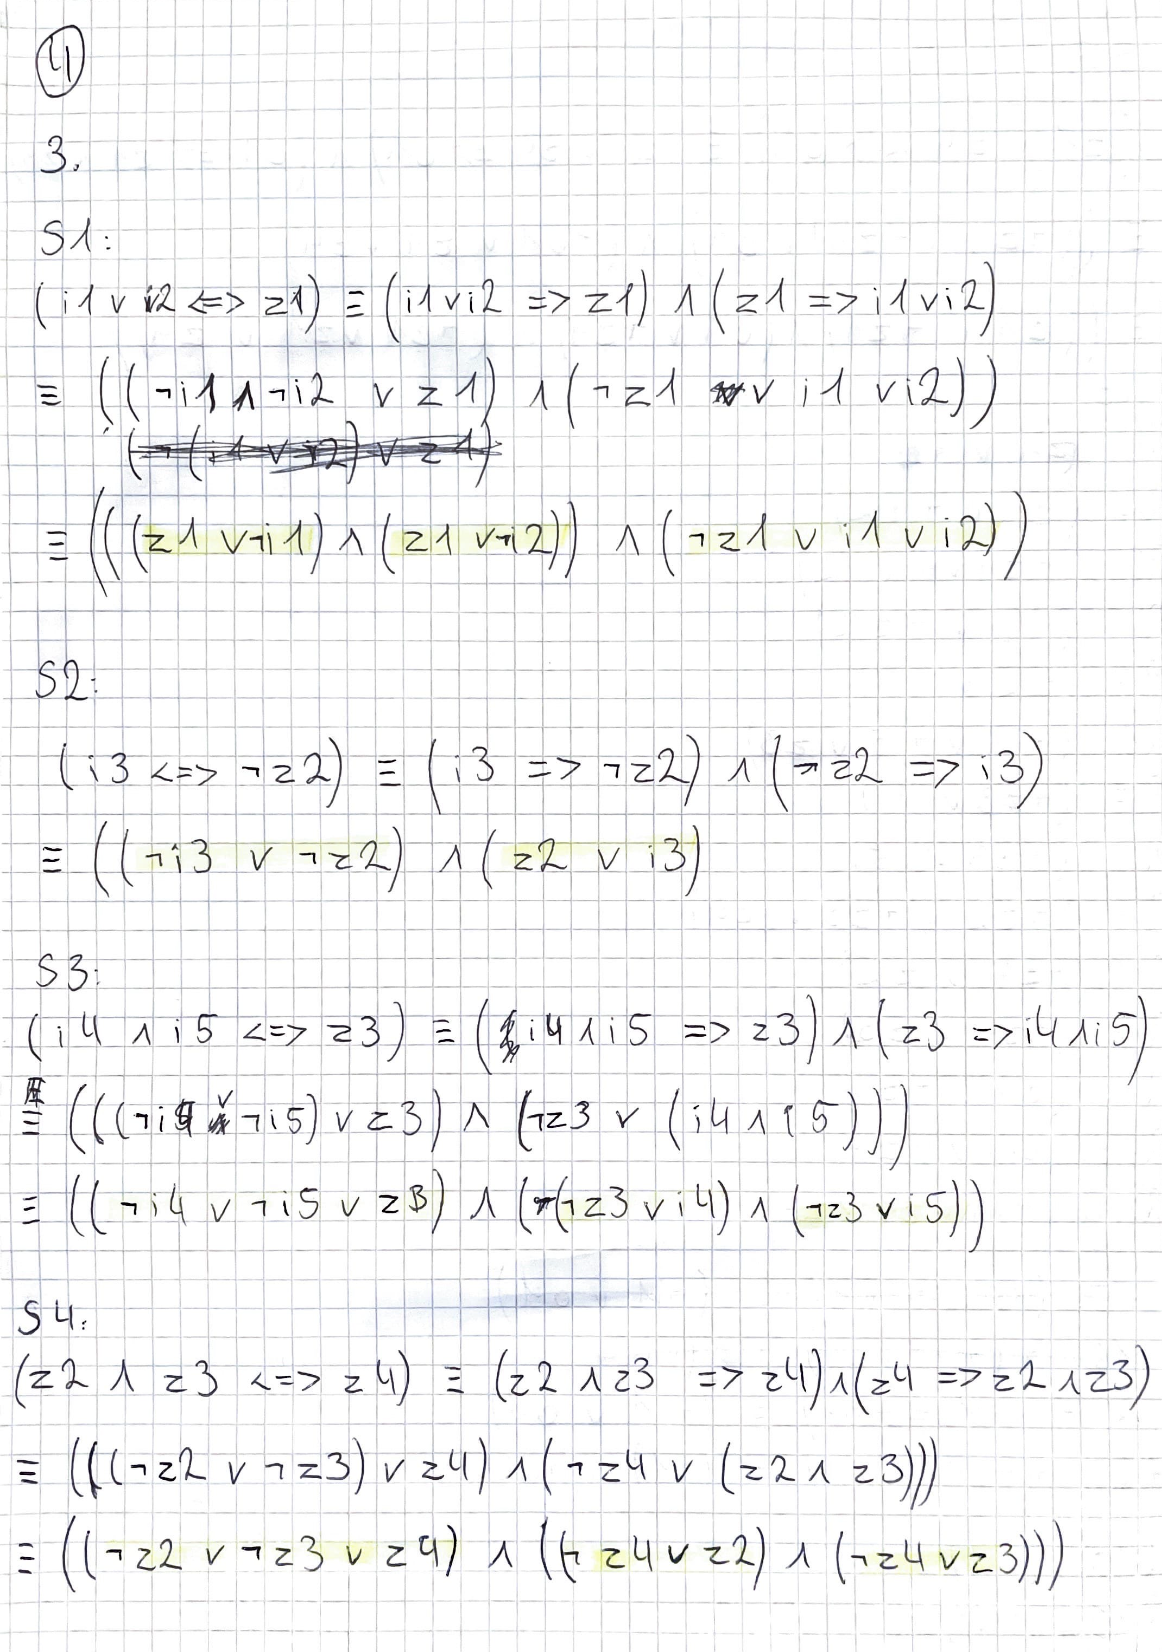 4
3.
S1:
(i1 ∨ i2 <=> z1) ≡ (i1 ∨ i2 => z1) ∧ (z1 => i1 ∨ i2)
≡ ((¬i1 ∧ ¬i2 ∨ z1) ∧ (¬z1 ∨ i1 ∨ i2))
(¬(i1 ∨ i2) ∨ z1)
≡ (((z1 ∨ ¬i1) ∧ (z1 ∨ ¬i2)) ∧ (¬z1 ∨ i1 ∨ i2))
S2:
(i3 <=> ¬z2) ≡ (i3 => ¬z2) ∧ (¬z2 => i3)
≡ ((¬i3 ∨ ¬z2) ∧ (z2 ∨ i3)
S3:
(i4 ∧ i5 <=> z3) ≡ (i4 ∧ i5 => z3) ∧ (z3 => i4 ∧ i5)
≡ (((¬i4 ∨ ¬i5) ∨ z3) ∧ (¬z3 ∨ (i4 ∧ i5)))
≡ ((¬i4 ∨ ¬i5 ∨ z3) ∧ ((¬z3 ∨ i4) ∧ (¬z3 ∨ i5))
S4:
(z2 ∧ z3 <=> z4) ≡ (z2 ∧ z3 => z4) ∧ (z4 => z2 ∧ z3)
≡ (((¬z2 ∨ ¬z3) ∨ z4) ∧ (¬z4 ∨ (z2 ∧ z3)))
≡ ((¬z2 ∨ ¬z3 ∨ z4) ∧ ((¬z4 ∨ z2) ∧ (¬z4 ∨ z3)))